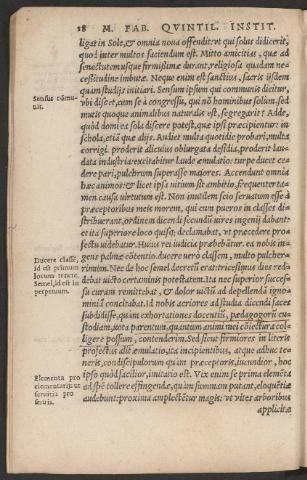 18 M. FAB. QVINTIL. INSTIT.
ligat in Sole, & omnia noua offendit: ut qui solus didicerit,
quod inter multos faciendum est. Mitto amicitias, quæ ad
senectutem usque firmissimæ durant, religiosa quadam ne
cessitudine imbutæ. Neque enim est sanctius, sacris ijsdem
quàm studijs initiari. Sensum ipsum qui communis dicitur,
Sensus cõmu
nis.
ubi discet, cum se à congressu, qui nõ hominibus solùm, sed
mutis quoque animalibus naturalis est, segregarit? Adde,
quòd domi ea sola discere potest, quæ ipsi præcipientur: in
schola, etiã quæ alijs. Audiet multa quotidie probari, multa
corrigi. proderit alicuius obiurgata desidia, proderit lau-
data industria: excitabitur laude æmulatio: turpe ducet ce
dere pari, pulchrum superasse maiores. Accendunt omnia
hæc animos: & licet ipsa uitium sit ambitio, frequenter ta-
men causa uirtutum est. Non inutilem scio seruatum esse à
præceptoribus meis morem, qui cum pueros in classes di-
stribuerant, ordinem dicendi secundũ uires ingenij dabant:
et ita superiore loco quisq; declamabat, ut præcedere pro-
fectu uidebatur. Huius rei iudicia præbebãtur. ea nobis in-
gens palmæ cõtentio. ducere uerò classem, multo pulcher-
Ducere classẽ,
id est primum
locum tenere.
Semel, id est in
perpetuum.
rimum. Nec de hoc semel decretũ erat: tricesimus dies red-
debat uicto certaminis potestatem. Ita nec superior succes-
su curam remittebat, & dolor uictũ ad depellendã igno-
miniã concitabat. Id nobis acriores ad studia dicendi faces
subdidisse, quàm exhortationes docentiũ, pædagogorũ cu-
stodiam, uota parentum, quantum animi mei cõiectura col-
ligere possum, contenderim. Sed sicut firmiores in literis
profectus alit æmulatio, ita incipientibus, atque adhuc te-
neris, condiscipulorum quàm præceptoris, iucundior, hoc
ipso quòd facilior, imitatio est. Vix enim se prima elemẽta
Elementa pro
elementarijs ut
seruitia pro
seruis.
ad spẽ tollere effingendæ, quam summam putant, eloquẽtiæ
audebunt: proxima amplectẽtur magis: ut uites arboribus
applicitæ